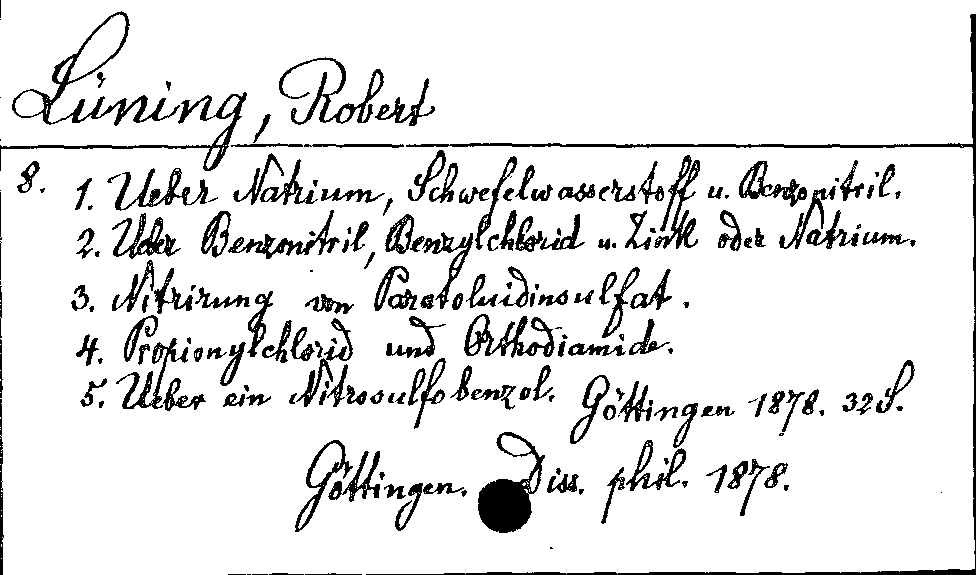 Lüning, Robert
8. 1. Ueber Natrium, Schwefelwasserstoff u. Benzonitril.
2. Ueber Benzonitril, Benzylchlorid u. Zink oder Natrium.
3. Nitrirung von Paratoluidinsulfat.
4. Propionylchlorid und Orthodiamide.
5. Ueber ein Nitrosulfobenzol. Göttingen 1878. 32 S.
Göttingen. Diss. phil. 1878.